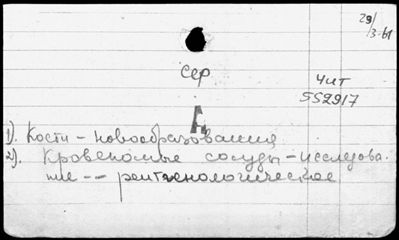 29/3-61
сер
Чит
552917
А
1). Кости – новообразования
2). Кровеносные сосуды – исследова-
ние -- рентгенологическое